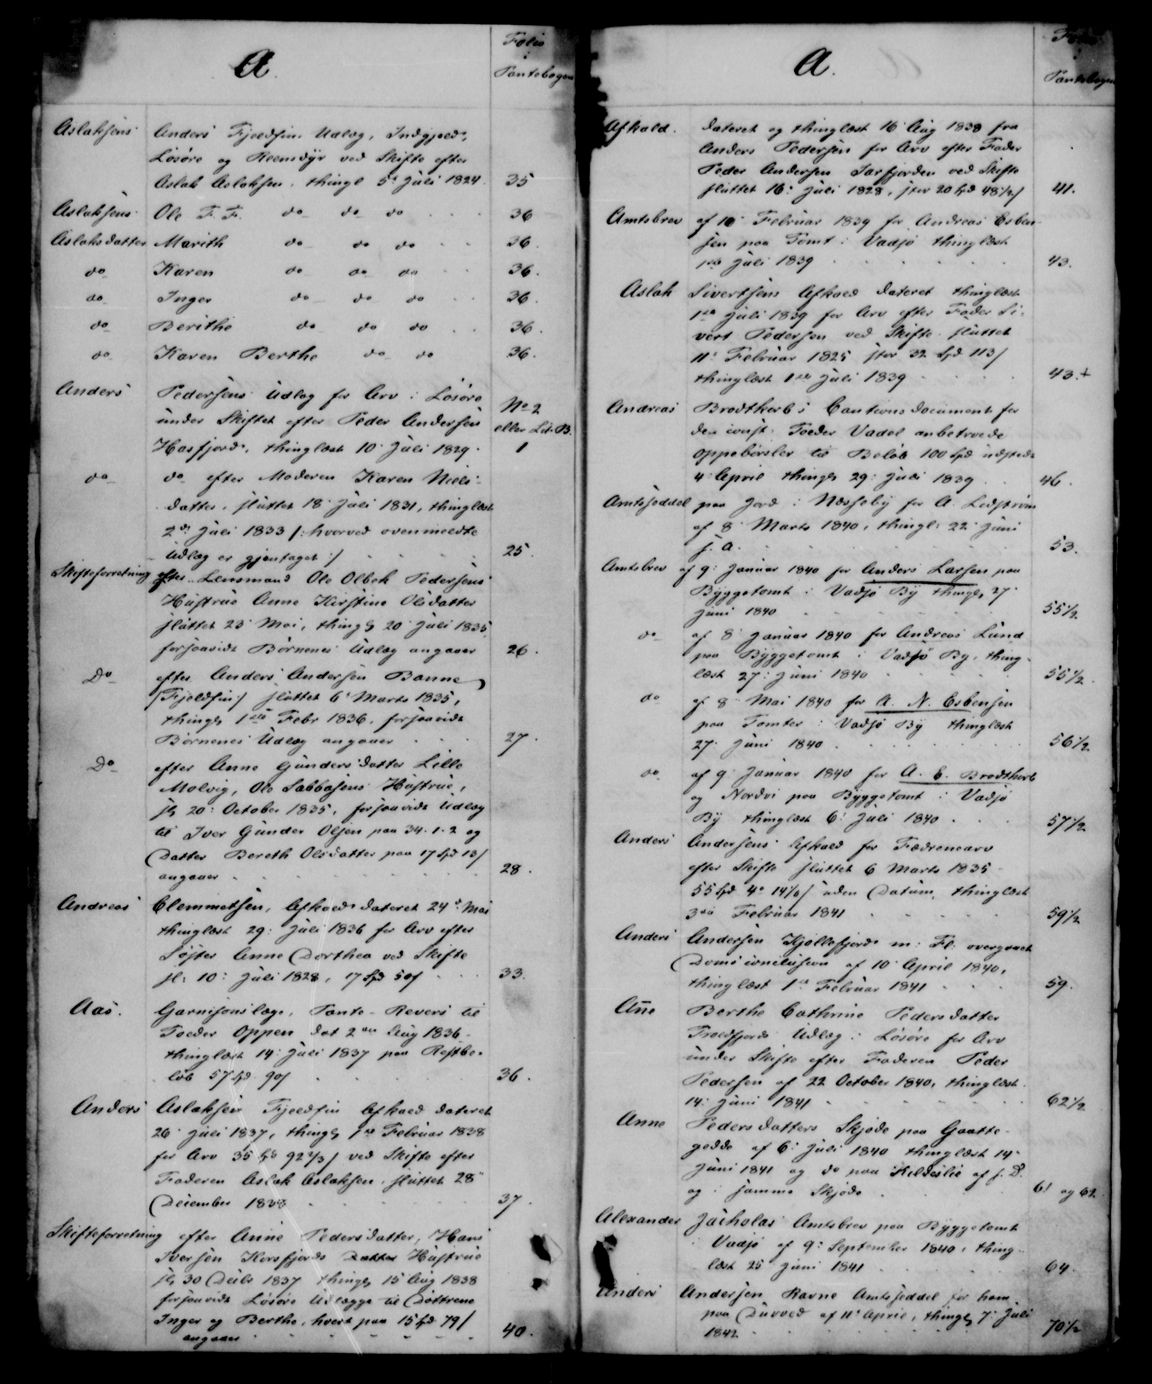 A.
Folio
i
Pantebogen
Aslaksens Anders Fjeldfin Udlæg, Indgjæld,
Løsøre og Reensdyr ved Skifte efter
Aslak Aslaksen, thingl 5te Juli 1824. 35
Aslaksens Ole F. F. do do do 36
Aslaksdatter Marith do do do 36.
do Karen do do do 36.
do Inger do do do 36.
do Berithe do do do 36.
do Karen Berthe do do 36.
Anders Pedersens Udlæg for Arv i Løsøre No 2
under Skiftet efter Peder Andersen eller Lit. B.
Hasfjord, thinglæst 10 Juli 1829. 1
do do efter Moderen Karen Niels-
datter, sluttet 18 Juli 1831, thinglæst
2den Juli 1833 /: hvorved ovenmeldte
Udlæg er gjentaget :/ 25.
Skifteforretning efter Lensmand Ole Olbek Pedersens
Hustrue Anne Kirstine Olsdatter
sluttet 23 Mai, thingl 20 Juli 1835
forsaavidt Børnenes Udlæg angaaer 26.
Do efter Anders Andersen Banne
/Fjeldfin/ sluttet 6 Marts 1835,
thingl 1ste Febr 1836, forsaavidt
Børnenes Udlæg angaaer 27.
Do efter Anne Gundersdatter Lille
Molvig, Ole Sabbasens Hustrue,
sl 20 October 1835, forsaavidt Udlæg
til Iver Gunder Olsen paa 34.1.2 og
Datter Bereth Olsdatter paa 17 Spd 13/
angaaer 28.
Andreas Clemmetsen, Afkald dateret 24de Mai
thinglæst 29 Juli 1836 for Arv efter
Søster Anne Dorthea ved Skifte
sl: 10: Juli 1828, 17 Spd 50/ 33.
Aas. Garnisonslæge, Pante-Revers til
Foeder Oppen dat 2den Aug 1836
thinglæst 14 Juli 1837 paa Restbe-
løb 57 Spd 90/ 36.
Anders Aslaksen Fjeldfin Afkald dateret
26 Juli 1837, thingl 1ste Februar 1838
for Arv 35 Spd 92 2/3/ ved Skifte efter
Faderen Aslak Aslaksen, sluttet 28
December 1833 37.
Skifteforretning efter Anne Pedersdatter, Hans
Iversen Kersfjords Hustrue
sl 30 Decbr 1837 thingl 15 Aug 1838
forsaavidt Løsøre Udlægge til Døttrene
Inger og Berthe, hvert paa 15 Spd 79/
angaaer 40.
A.
Folio
i
Pantebogen
Afkald. dateret og thinglæst 16 Aug 1838 fra
Anders Pedersen for Arv efter Fader
Peder Andersen Jarfjorden ved Skifte
sluttet 16 Juli 1828, stor 20 Spd 48 1/2/ 41.
Amtsbrev af 10 Februar 1839 for Andreas Esben-
sen paa Tomt i Vadsø thinglæst
1ste Juli 1839 43.
Aslak Sivertsens Afkald dateret thinglæst
1ste Juli 1839 for Arv efter Fader Si-
vert Pedersen ved Skifte sluttet
11 Februar 1825 stor 32 Spd 113/
thinglæst 1ste Juli 1839 43.+
Andreas Brodtkorb's Cautions document for
den const. Foeder Vadel anbetroede
Oppebørsler til Beløb 100 Spd udstedt
4 April thingl 29 Juli 1839 46.
Amtsseddel paa Jord i Næsseby for A. Ledstrøm
af 8 Marts 1840, thingl: 22 Juni
s. A. 53.
Amtsbrev af 9: Januar 1840 for Anders Larsen paa
Byggetomt i Vadsø By thingl 27
Juni 1840 55 1/2.
do af 8 Januar 1840 for Andreas Lund
paa Byggetomt i Vadsø By, thing-
læst 27: Juni 1840 55 1/2.
do af 8 Mai 1840 for A. N. Esbensen
paa Tomter i Vadsø By thinglæst
27 Juni 1840 56 1/2.
do af 9 Januar 1840 for A. E. Brodtkorb
og Nordvi paa Byggetomt i Vadsø
By thinglæst 6: Juli 1840 57 1/2
Anders Andersens Afkald for Fædrenearv
efter Skifte sluttet 6 Marts 1835
55 Spd 4 14/ uden Datum, thinglæst
3die Februar 1841 59 1/2
Anders Andersen Kjøllefjord m: Fl. overgaaet
Domsconclusion af 10 April 1840,
thinglæst 1ste Februar 1841 59.
Ane Berthe Cathrine Pedersdatter
Udlæg i Løsøre for Arv
under Skifte efter Faderen Peder
Pedersen af 22 October 1840, thinglæst
14: Juni 1841 62 1/2
Anne Pedersdatters Skjøde paa Gaatte-
gedde af 6: Juli 1840 thinglæst 14
Juni 1841 og do paa Kildeslie af s. D.
og i samme Skjøde 61 og 62.
Alexander Jacholas Amtsbrev paa Byggetomt
i Vadsø af 9: September 1840, thing-
læst 25 Juni 1841 64.
Anders Andersen Ravne Amtsseddel for ham
paa af 11 April, thingl 7 Juli
1842 70 1/2